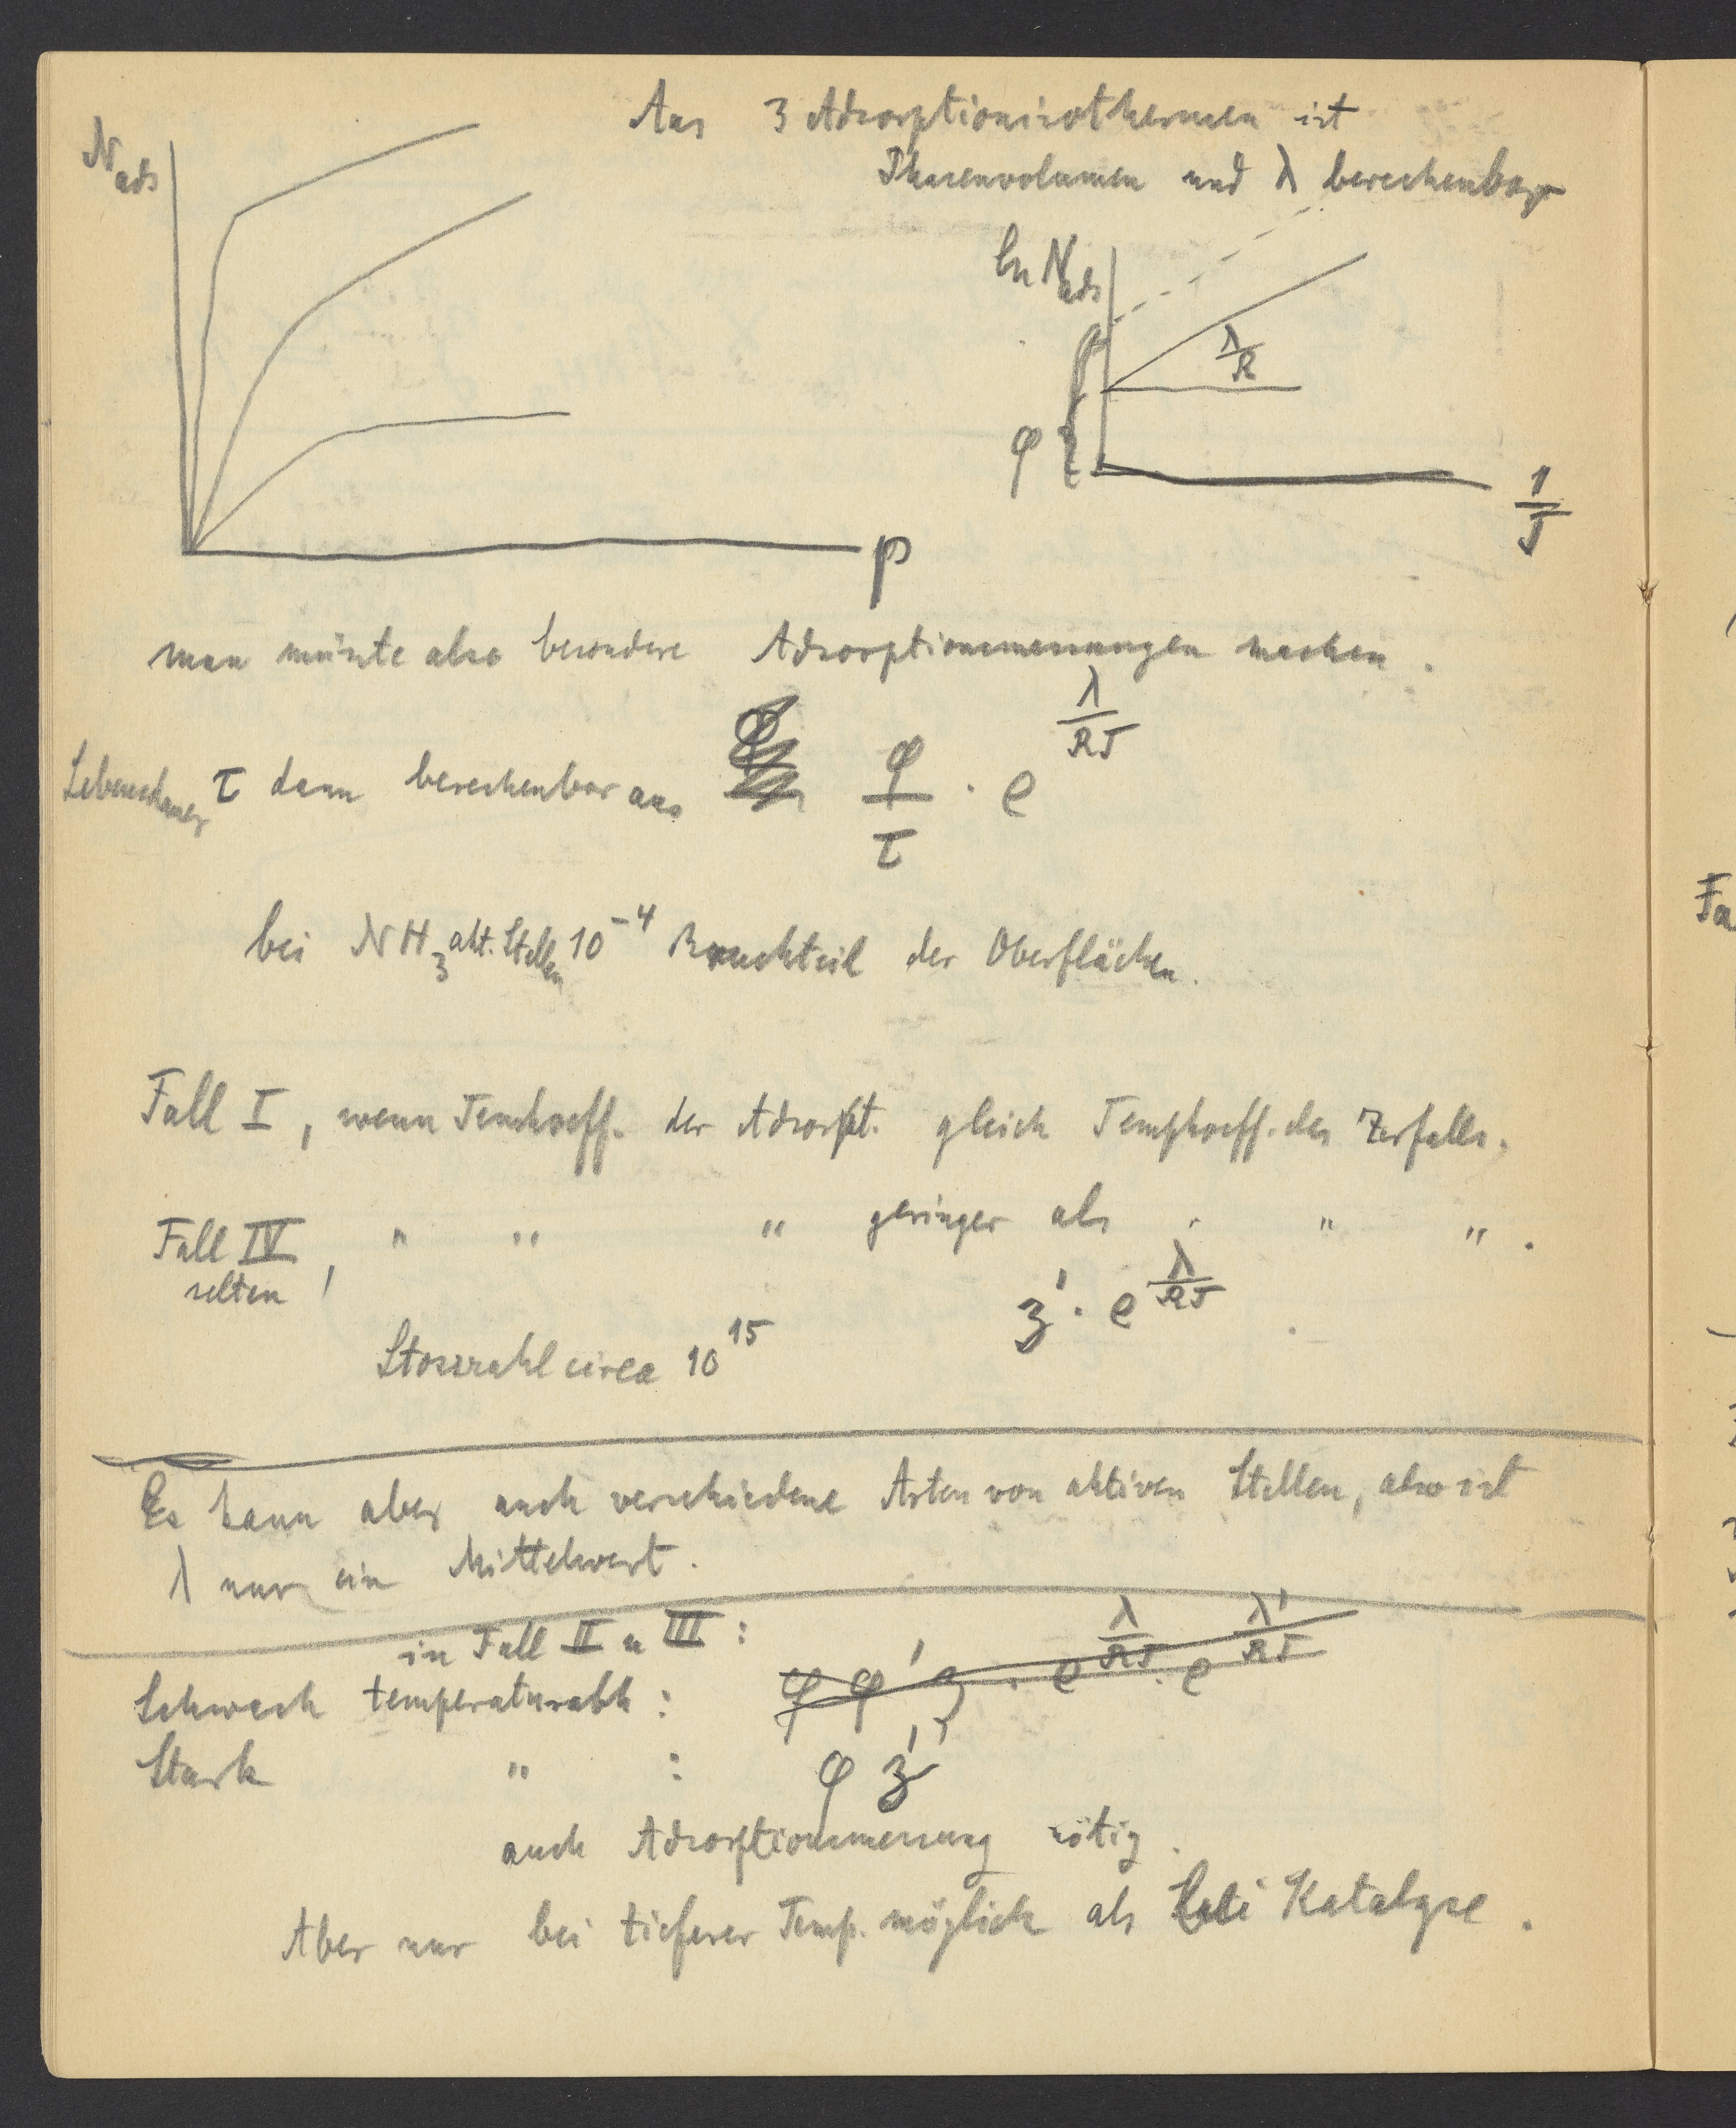 Aus 3 Adsorptionsisothermen ist
Phasenvolumen und λ berechenbar
N ads
p
ln N ads
λ/R
φ
1/T
man müsste also besondere Adsorptionsmessungen machen.
Lebensdauer τ dann berechenbar aus φ/τ · e^(λ/RT)
bei NH₃ akt. Stellen 10⁻⁴ Bruchteil der Oberflächen.
Fall I, wenn Tempkoeff. der Adsorpt. gleich Tempkoeff. des Zerfalls.
Fall IV, " " " geringer als " " ".
selten!
z' · e^(λ/RT)
Stosszahl circa 10¹⁵
Es kann aber auch verschiedene Arten von aktiven Stellen, also ist
λ nur ein Mittelwert.
in Fall II u III:
Schwach temperaturabh: φ φ' z · e^(λ/RT) · e^(λ'/RT)
Stark " : φ z'
auch Adsorptionsmessung nötig.
Aber nur bei tieferer Temp. möglich als bei Katalyse.